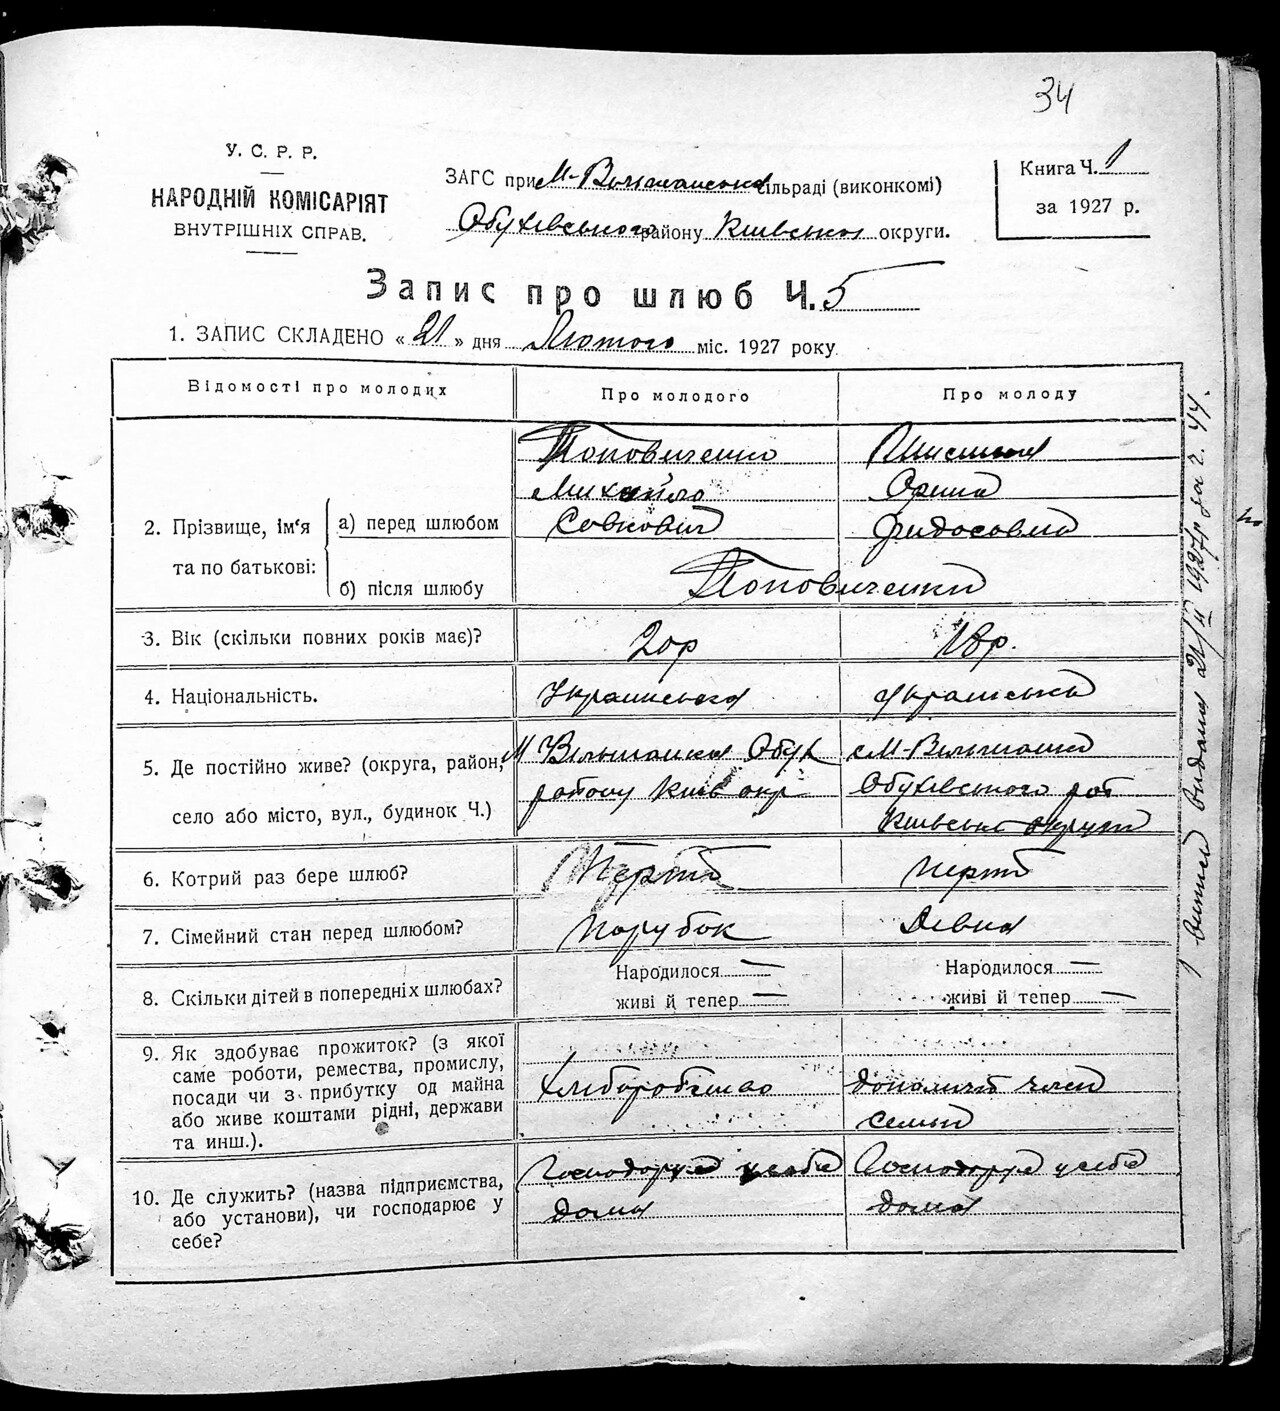 34
У. С. Р. Р.
НАРОДНІЙ КОМІСАРІЯТ
ВНУТРІШНІХ СПРАВ.
ЗАГС при М-Вільшанській сільраді (виконкомі)
Обухівського району Київської округи.
Книга Ч. 1
за 1927 р.
Запис про шлюб Ч. 5
1. ЗАПИС СКЛАДЕНО « 21 » дня Лютого міс. 1927 року
Відомості про молодих
Про молодого
Про молоду
2. Прізвище, ім'я
та по батькові:
а) перед шлюбом
Поповиченко
Михайло
Совкович
Орина
Фидосовна
б) після шлюбу
Поповиченки
3. Вік (скільки повних років має)?
20р
18р.
4. Національність.
Украинська
Украинська
5. Де постійно живе? (округа, район,
село або місто, вул., будинок Ч.)
М Вільшанка Обух
району Київ окр
М-Вільшанка
Обухівського рай
Київської округи
6. Котрий раз бере шлюб?
Перший
перший
7. Сімейний стан перед шлюбом?
Парубок
Дівка
8. Скільки дітей в попередніх шлюбах?
Народилося —
живі й тепер —
Народилося —
живі й тепер —
9. Як здобуває прожиток? (з якої
саме роботи, ремества, промислу,
посади чи з прибутку од майна
або живе коштами рідні, держави
та инш.).
Хлиборобство
член
семьи
10. Де служить? (назва підприємства,
або установи), чи господарює у
себе?
Господарує у себе
дома
Господарує у себе
дома
видана 21/II 1927р за Ч. 44.